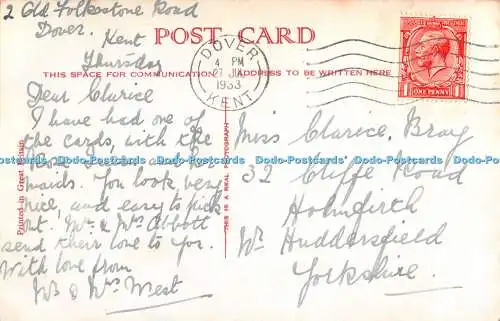 2 Old Folkestone Road
Dover.
Kent
Thursday
POST CARD
DOVER
4 PM
27 JUL
1933
KENT
ONE PENNY
THIS SPACE FOR COMMUNICATION
ADDRESS TO BE WRITTEN HERE
Dear Clarice
I have had one of
the cards, with the
maids. You look, very
nice, and easy to pick
out. Mr. & Mrs Abbott
send their love to you.
With love from
Mr & Mrs West
Printed in Great Britain
THIS IS A REAL PHOTOGRAPH
Miss Clarice, Bray
32 Cliffe Road
Holmfirth
Nr Huddersfield
Yorkshire.
Dodo-Postcards Dodo-Postcards Dodo-Postcards Dodo-Postcards Dodo-Postcards Dodo-Postcards